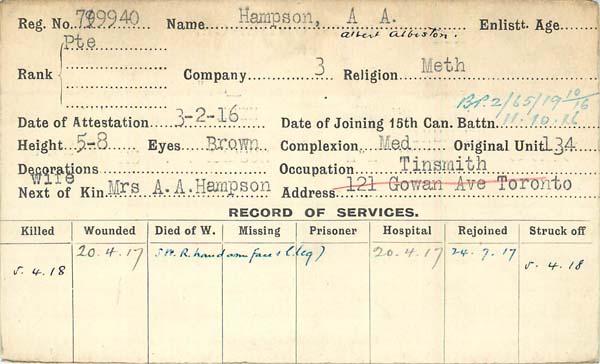 Reg. No. 799940 Name Hampson, A A. Enlistt. Age
Albert Albiston.
Pte
Rank Company 3 Religion Meth
B.P.2/65/19 10/16
Date of Attestation 3-2-16 Date of Joining 15th Can. Battn. 11.10.16
Height 5-8 Eyes Brown Complexion Med Original Unit 134
Decorations Occupation Tinsmith
Wife
Next of Kin Mrs A.A.Hampson Address 121 Gowan Ave Toronto
RECORD OF SERVICES.
Killed Wounded Died of W. Missing Prisoner Hospital Rejoined Struck off
20.4.17 SW. R. hand arm face & (leg) 20.4.17 24.7.17
5.4.18 5.4.18